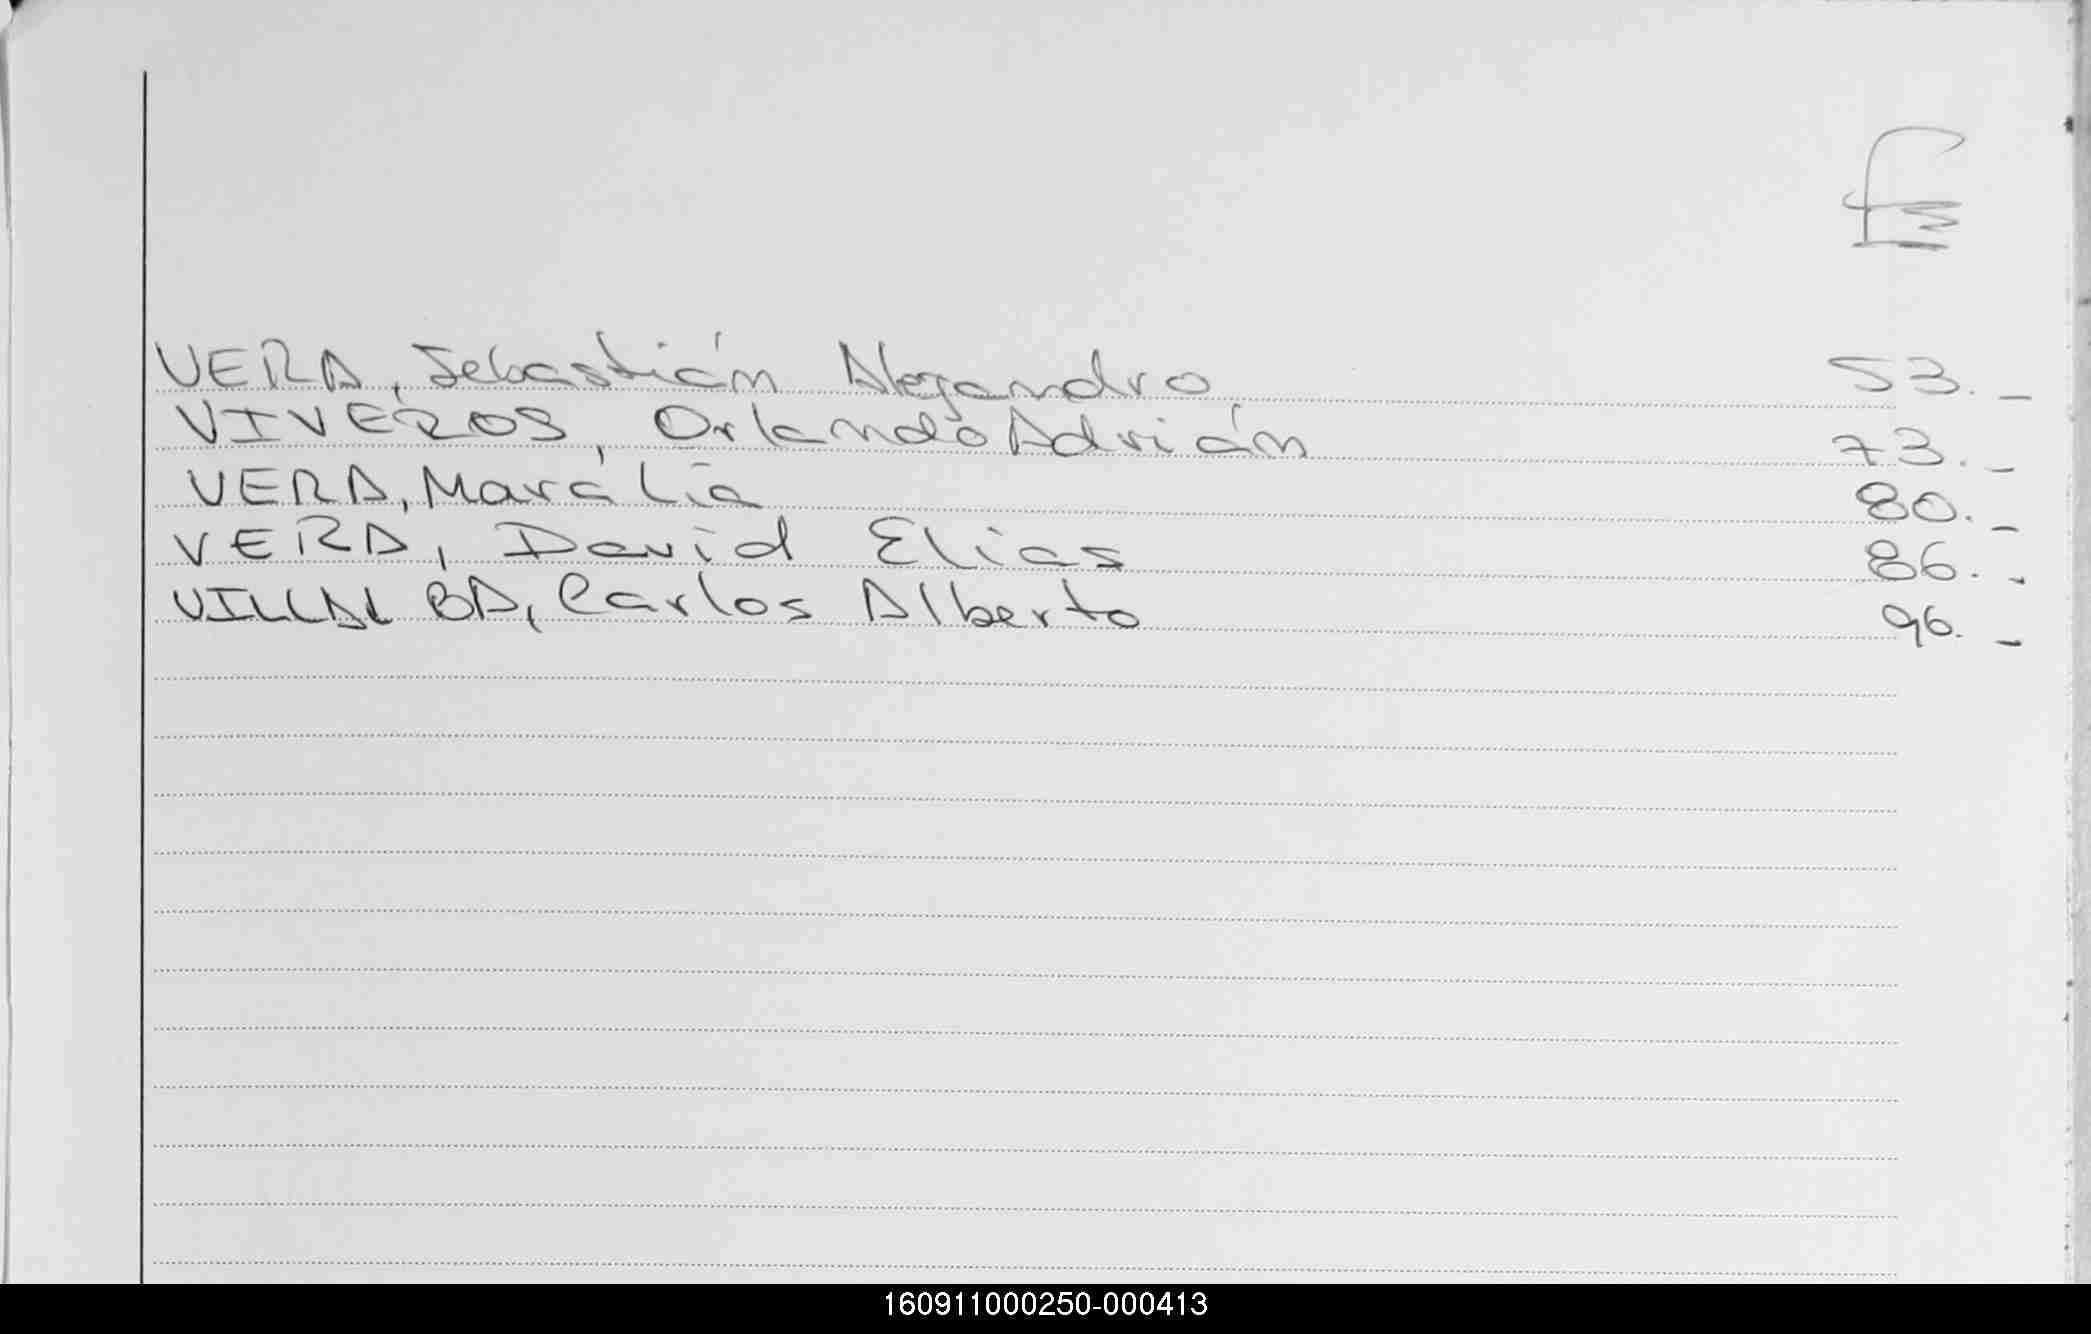 Fs
VERA, Sebastián Alejandro 53.-
VIVEROS, Orlando Adrián 73.-
VERA, María Lía 80.-
VERA, David Elias 86.-
VILLALBA, Carlos Alberto 96.-
160911000250-000413